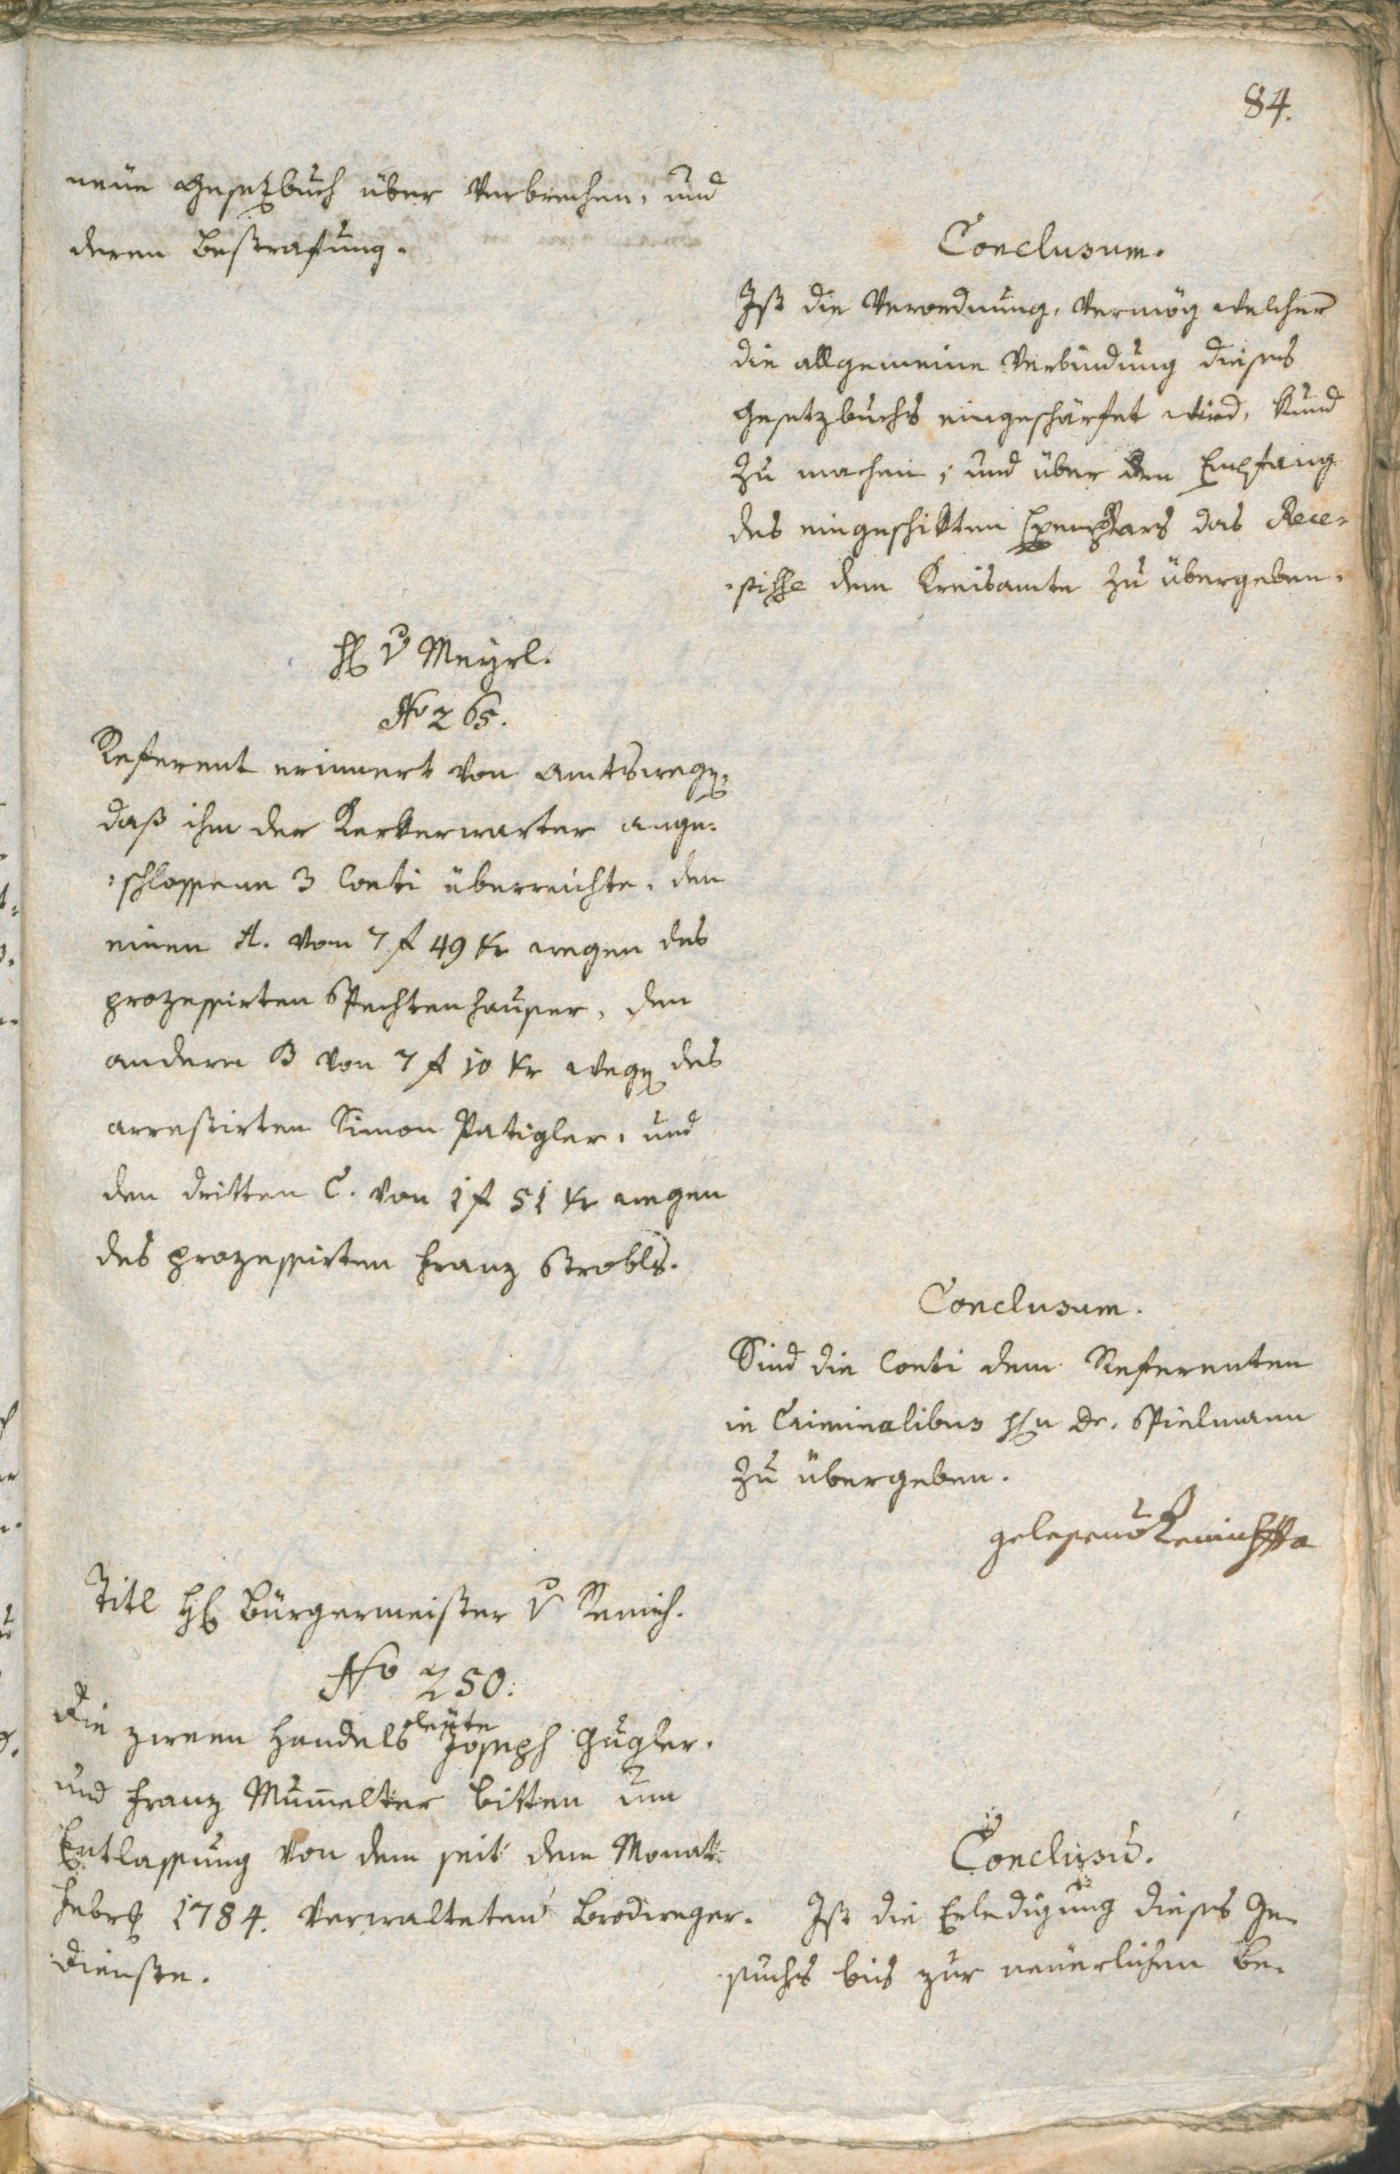 84.
neüe Gesetzbuch über Verbrechen, und
deren Bestrafung.
Conclusum.
Ist die Verordnung, vermög welcher
die allgemeine Verbindung dieses
Gesetzbuchs eingeschärfet wird, kund
zu machen, und über den Empfang
des eingeschikten Exemplars das Rece-
-pisse dem Kreisamte zu übergeben.
H v Meyrl.
No 265.
Referent erinnert von Amtswegen,
daß ihm der Kerkerwarter ange-
-schlossene 3 Conti überreichte, den
einen A. von 7 f 49 kr wegen des
prozessirten Stechtenhauser, den
andern B von 7 f 10 kr wegen des
arrestirten Simon Patigler, und
den dritten C. von 1 f 51 kr wegen
des prozessirten Franz Strobls.
Conclusum.
Sind die Conti dem Referenten
in Criminalibus Hn Dr. Stielmann
zu übergeben.
gelesen
Titl H Bürgermeister v Remich.
No 250.
Die zween Handelsleüte Joseph Gugler,
und Franz Mum̅elter bitten um
Entlassung von dem seit dem Monat
Febr 1784. verwalteten Brodweger-
Dienste.
Conclusu̅.
Ist die Erledigung dieses Ge-
suchs bis zur neuerlichen Be-